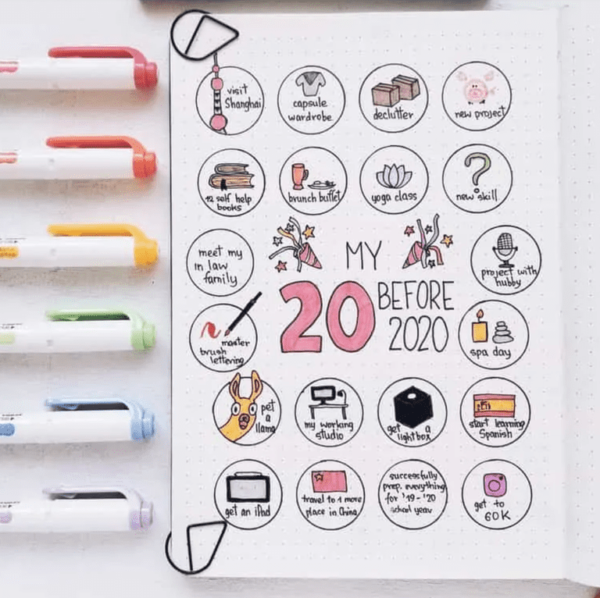 visit
Shanghai
capsule
wardrobe
declutter
new project
12 self help
books
brunch buffet
yoga class
new skill
meet my
in law
family
MY
20
BEFORE
2020
project with
hubby
master
brush
lettering
spa day
pet
a
llama
my working
studio
get a
lightbox
start learning
Spanish
get an iPad
travel to 1 more
place in China
successfully
prep. everything
for '19-'20
school year
get to
60K